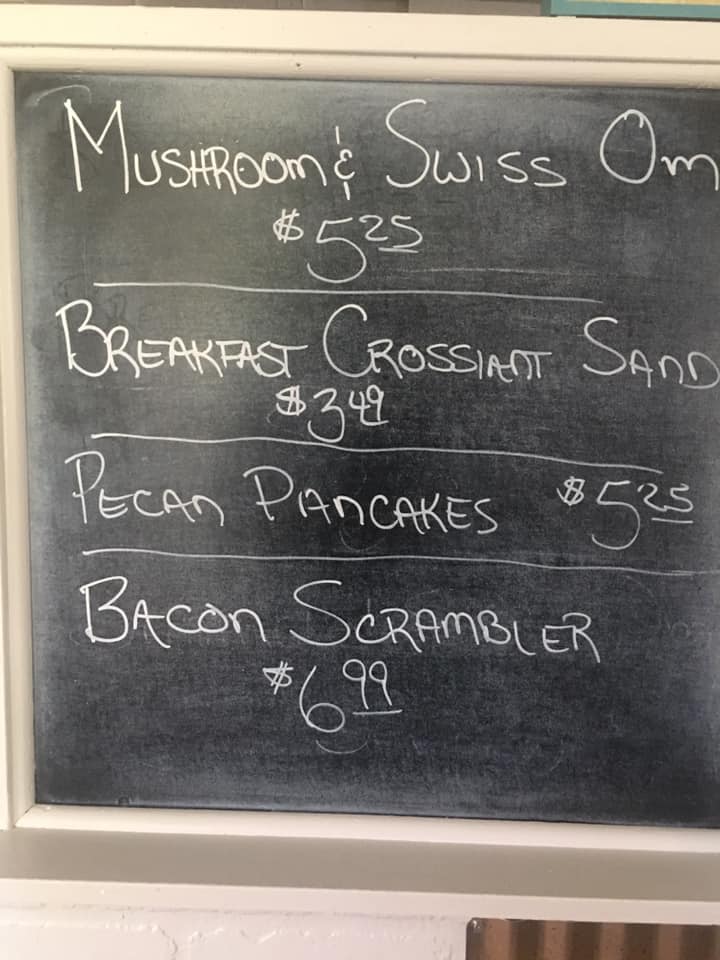 MUSHROOM & SWISS OM
$5.25
BREAKFAST CROSSIANT SAND
$3.49
PECAN PANCAKES $5.25
BACON SCRAMBLER
$6.99